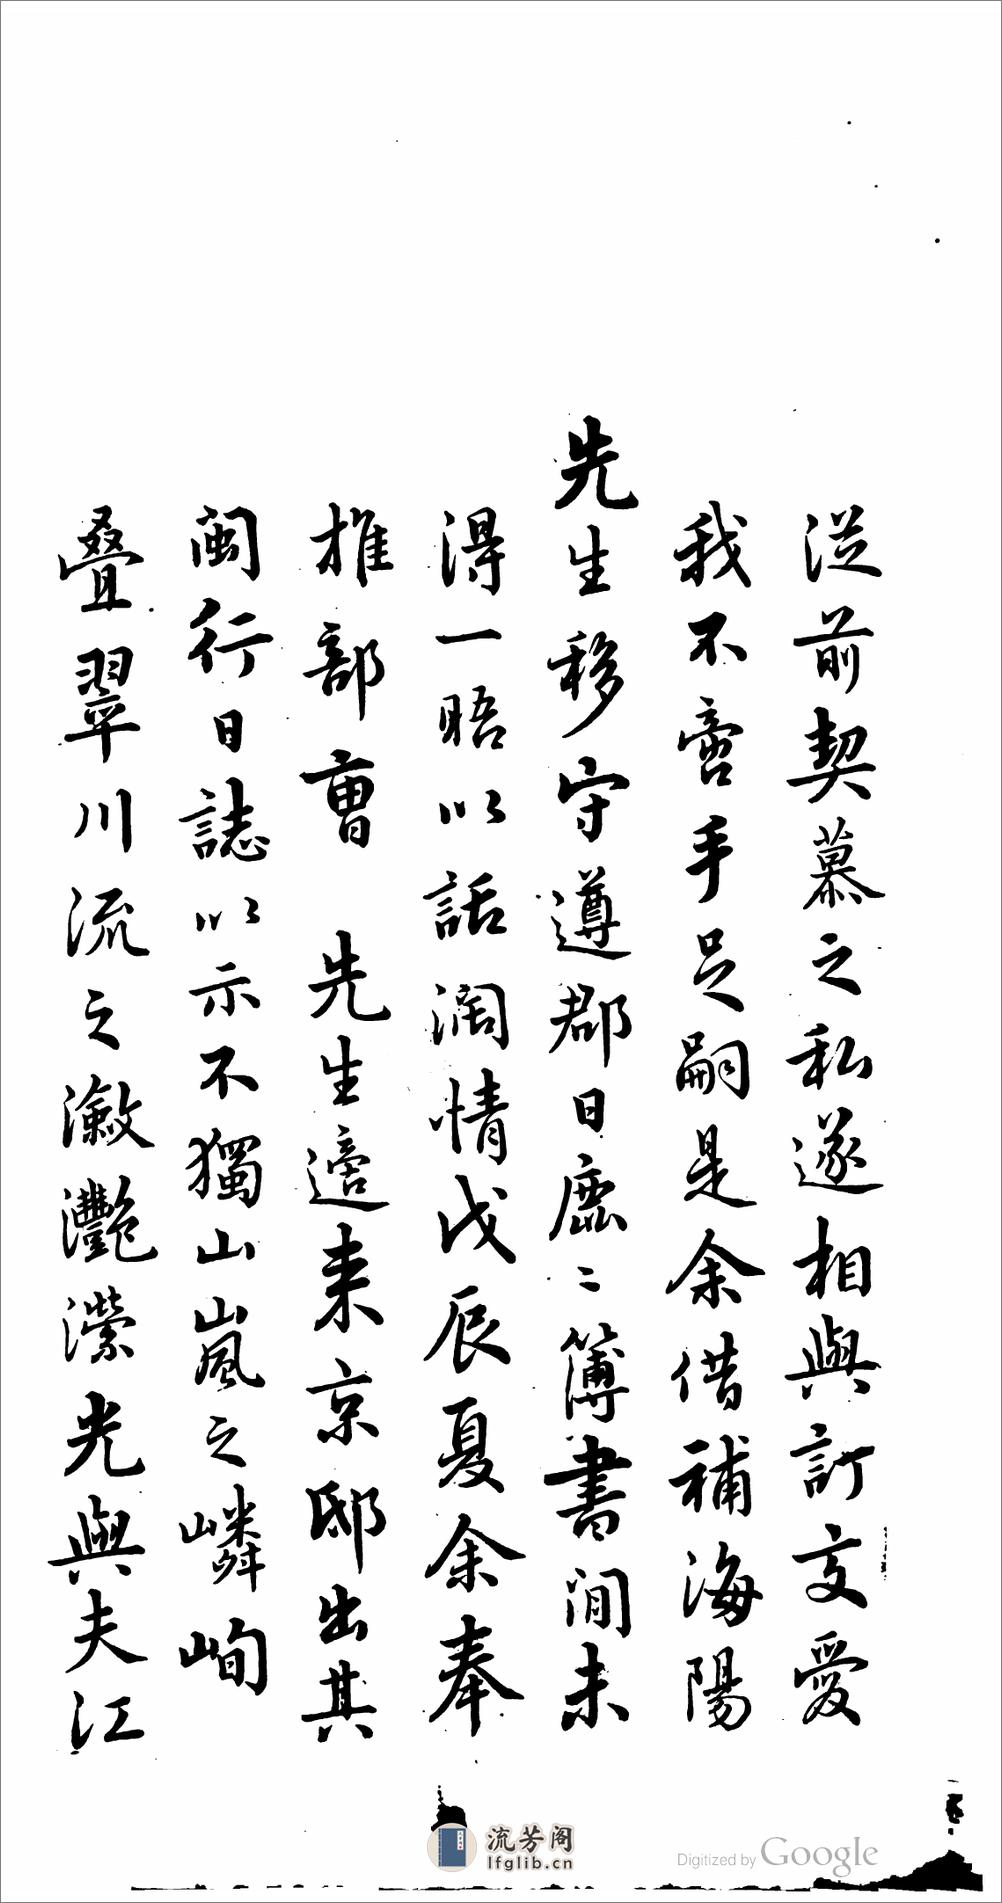 從前契慕之私遂相與訂交愛
我不啻手足嗣是余借補海陽
先生移守遵郡日鹿〻簿書間未
得一晤以話濶情戊辰夏余奉
推部曹　先生適来京邸出其
閩行日誌以示不獨山嵐之嶙峋
疊翠川流之瀲灧瀠光與夫江
流芳阁
lfglib.cn
Digitized by Google